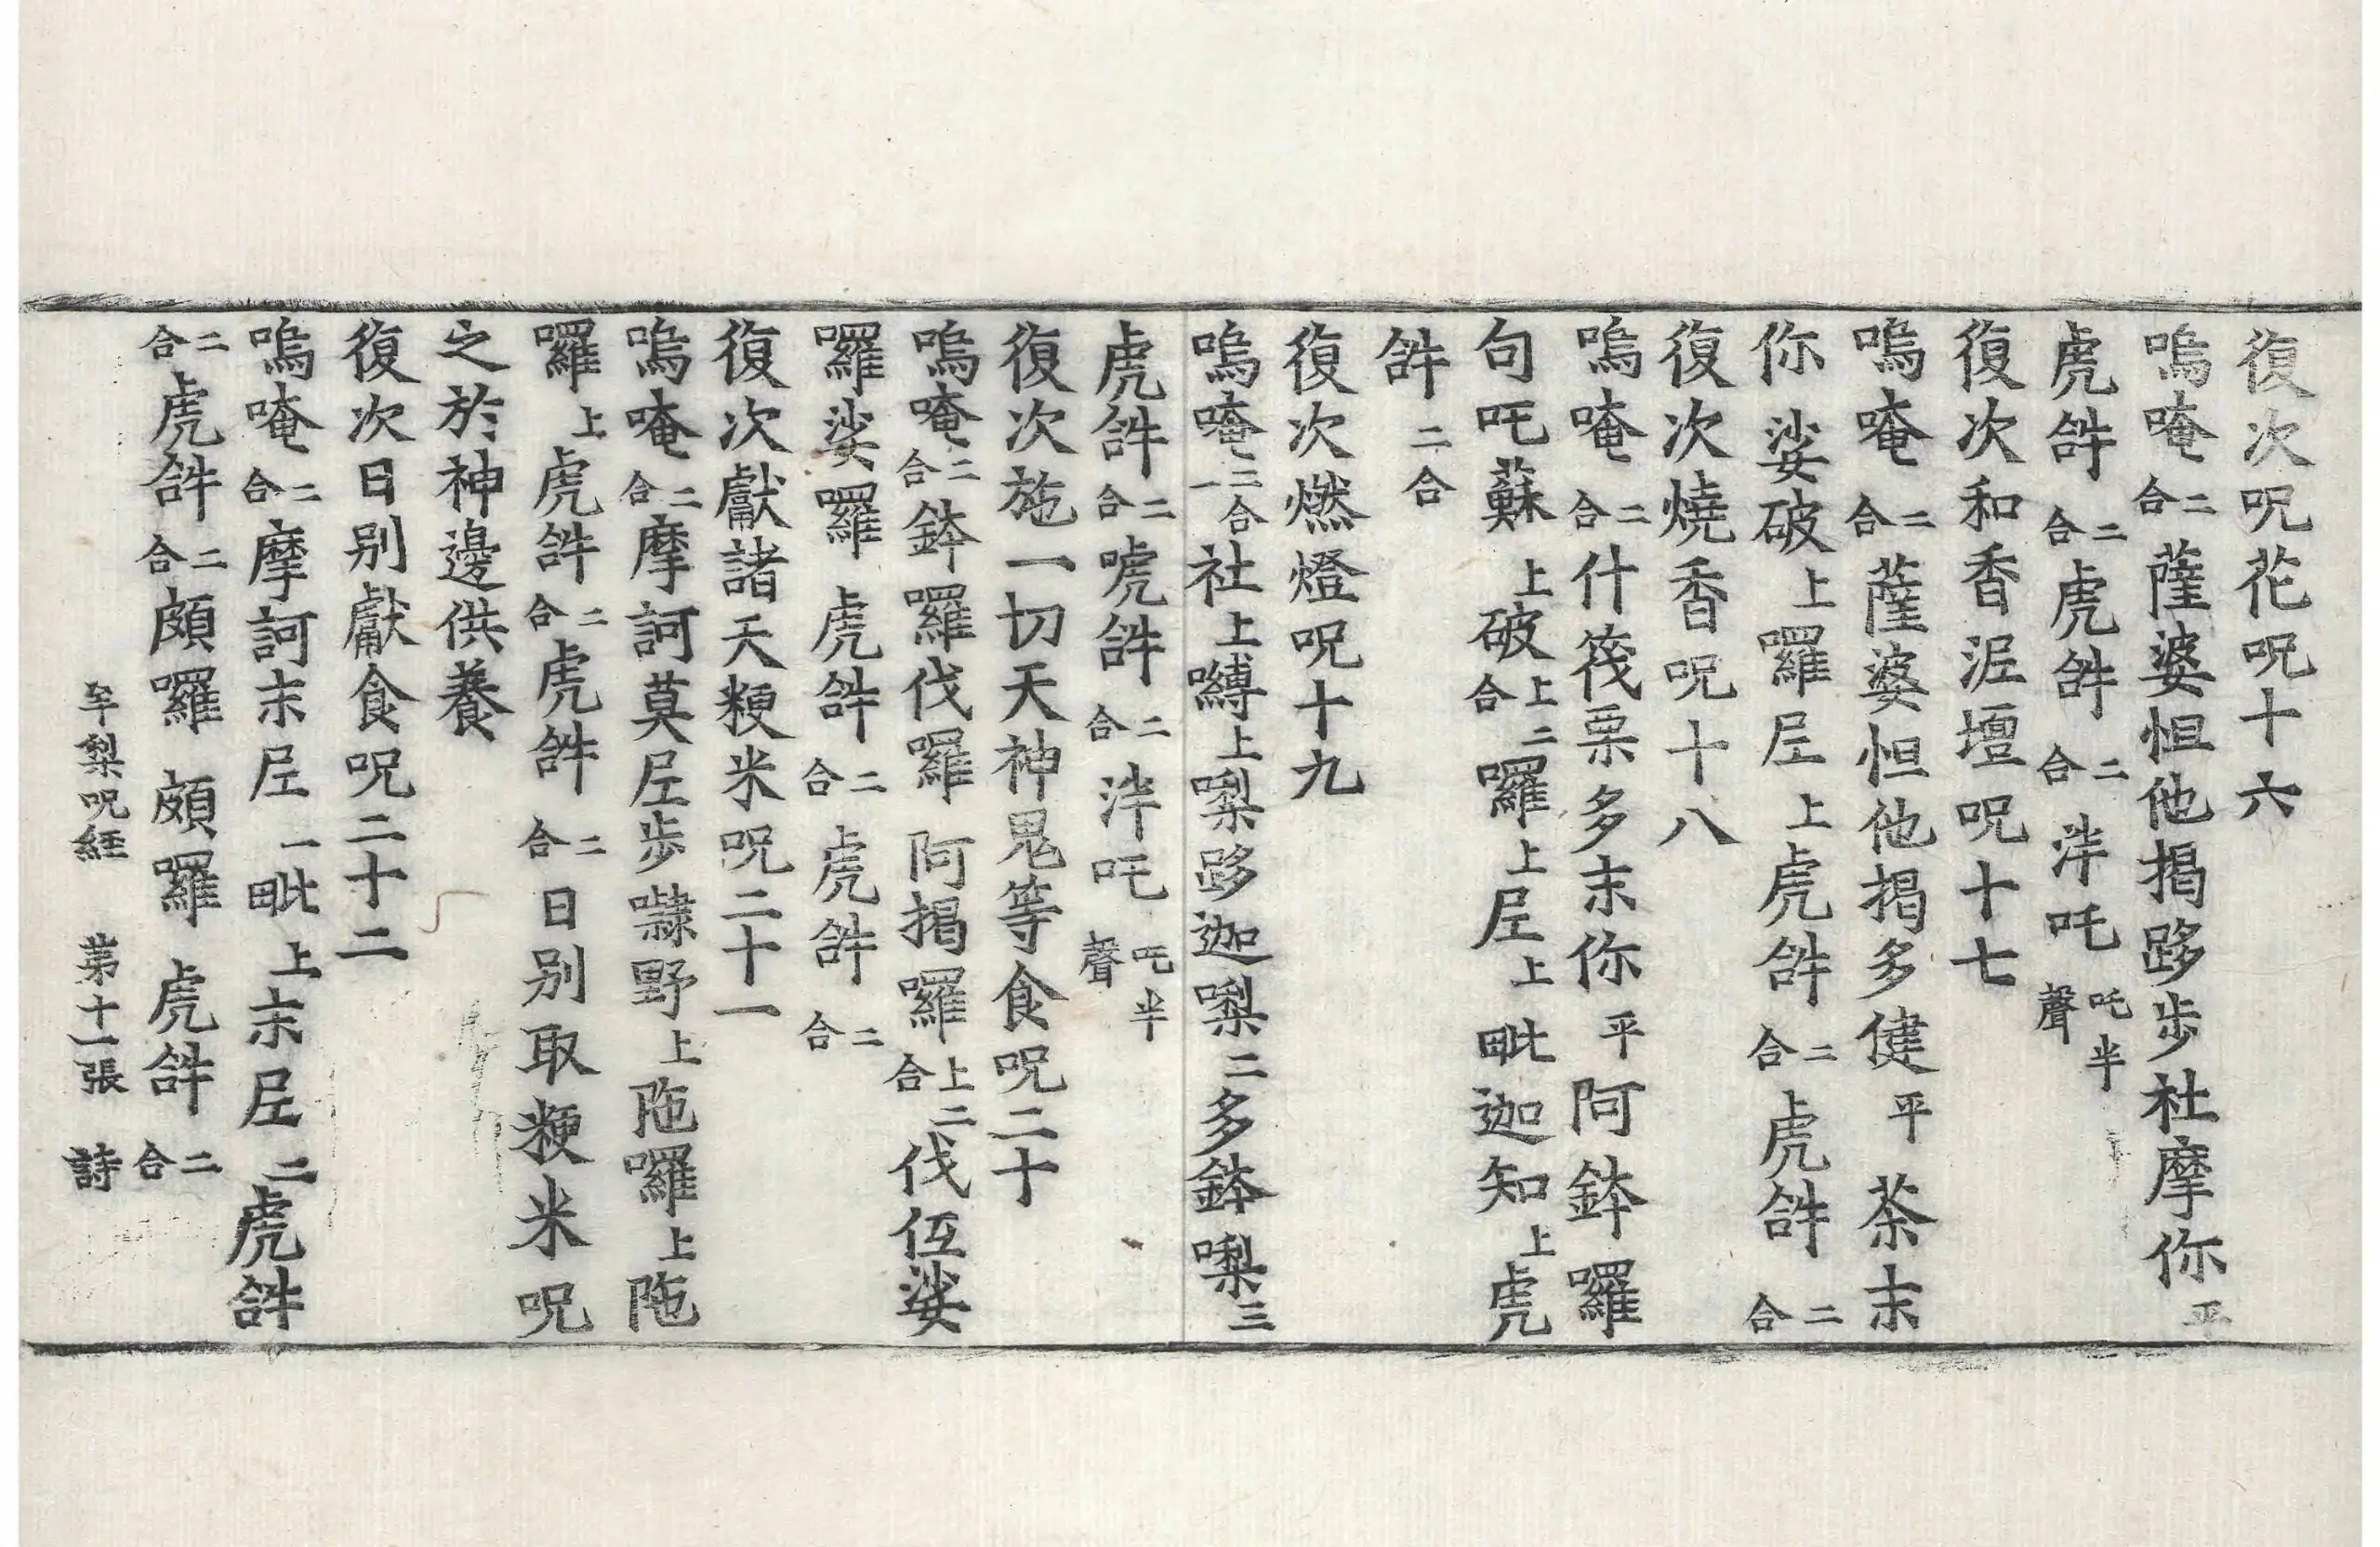 復次呪花呪十六
嗚唵二合薩婆怛他揭跢步社摩你平
虎𤙖二合虎𤙖二合泮吒吒半聲
復次和香泥壇呪十七
嗚唵二合薩婆怛他揭多健平荼末
你娑破上囉𡰱上虎𤙖二合虎𤙖二合
復次燒香呪十八
嗚唵二合什筏栗多末你平阿鉢囉
句吒蘇上破上二合囉上𡰱上毗迦知上虎
𤙖二合
復次燃燈呪十九
嗚唵二合一社上嚩上㗚跢迦㗚二多鉢㗚三
虎𤙖二合唬𤙖二合泮吒吒半聲
復次施一切天神鬼等食呪二十
嗚唵二合鉢囉伐囉阿揭囉上二合伐伍娑
囉娑囉虎𤙖二合虎𤙖二合
復次獻諸天粳米呪二十一
嗚唵二合摩訶莫𡰱步㘑野上陁囉上陁
囉上虎𤙖二合虎𤙖二合日别取粳米呪
之於神邊供養
復次日别獻食呪二十二
嗚唵二合摩訶末𡰱一毗上末𡰱二虎𤙖
二合虎𤙖二合頗囉頗囉虎𤙖二合
牟梨呪經 第十一張 詩